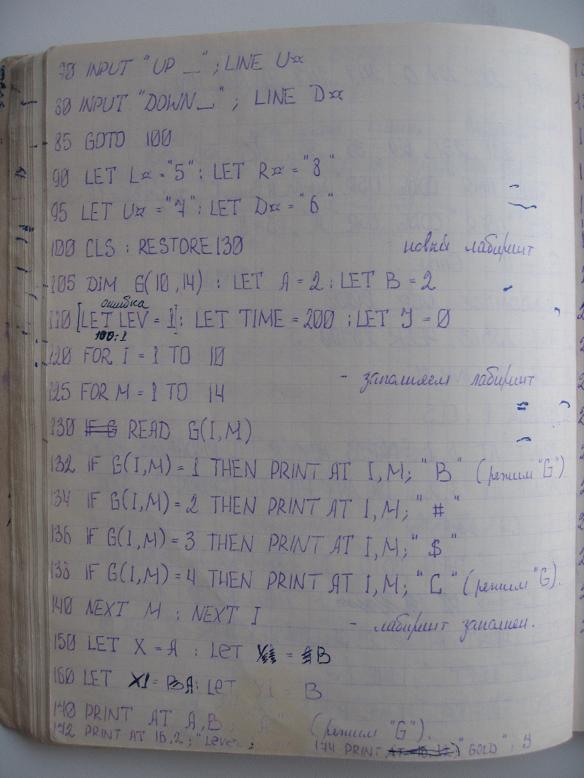 70 INPUT "UP _"; LINE U¤
80 INPUT "DOWN_"; LINE D¤
85 GOTO 100
90 LET L¤="5": LET R¤="8"
95 LET U¤="7": LET D¤="6"
100 CLS: RESTORE 130 новый лабиринт
105 DIM G(10,14): LET A=2: LET B=2
ошибка
110 [LET LEV=1]: LET TIME=200: LET Y=0
100:1
120 FOR I=1 TO 10
125 FOR M=1 TO 14 - заполняем лабиринт
130 IF G READ G(I,M)
132 IF G(I,M)=1 THEN PRINT AT I,M; "B" (режим "G")
134 IF G(I,M)=2 THEN PRINT AT I,M; "#"
136 IF G(I,M)=3 THEN PRINT AT I,M; "$"
138 IF G(I,M)=4 THEN PRINT AT I,M; "C" (режим "G").
140 NEXT M: NEXT I - лабиринт заполнен.
150 LET X=A: LET = B
160 LET X1= A: LET Y1 = B
170 PRINT AT A,B "A" (режим "G").
172 PRINT AT 16,2; "Level"; 174 PRINT "GOLD"; Y